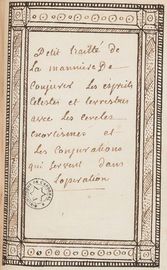 Petit traité de
la manniere De
Conjurer les esprits
Celestes et terrestres
avec les cercles
exorcismes et
les Conjurations
qui servent dans
L'operation